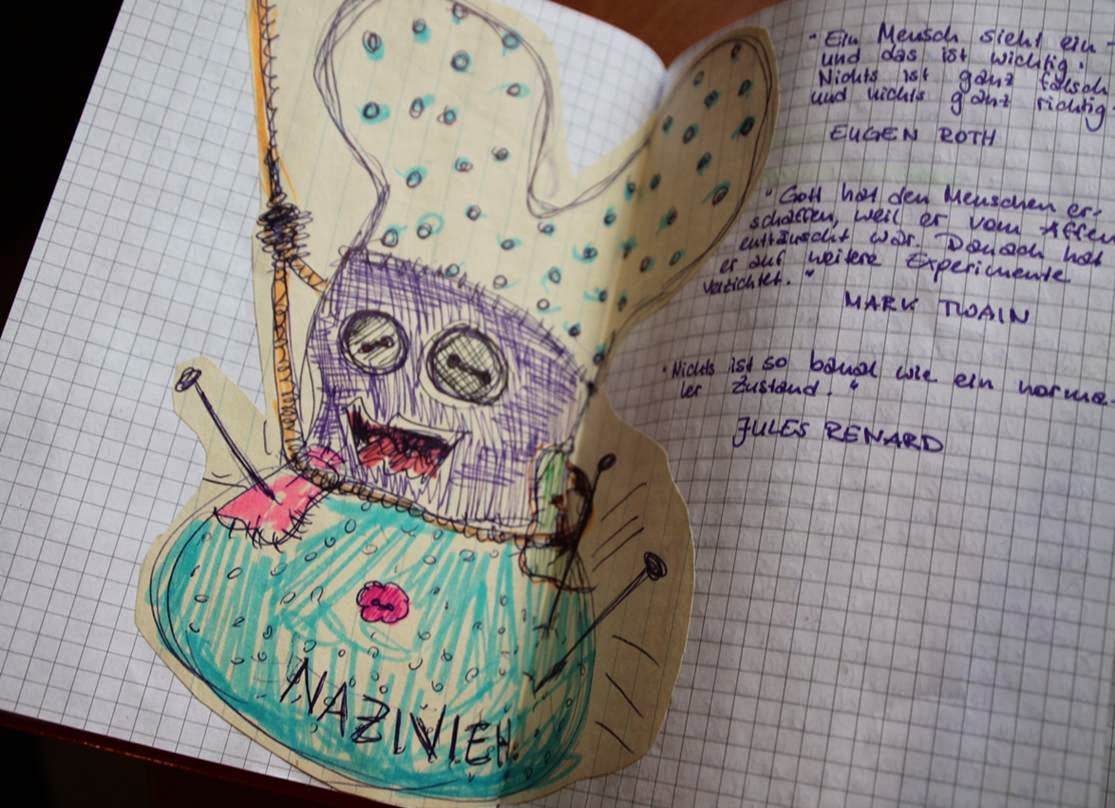 "Ein Mensch sieht ein
und das ist wichtig:
Nichts ist ganz falsch
und nichts ganz richtig
EUGEN ROTH
"Gott hat den Menschen er-
schaffen, weil er vom Affen
enttäuscht war. Danach hat
er auf weitere Experimente
verzichtet."
MARK TWAIN
"Nichts ist so banal wie ein norma-
ler Zustand."
JULES RENARD
NAZIVIEH.